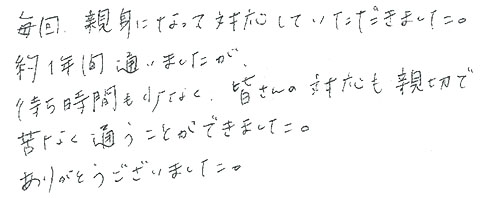 毎回、親身になって対応していただきました。
約1年間通いましたが、
待ち時間も少なく、皆さんの対応も親切で
苦なく通うことができました。
ありがとうございました。